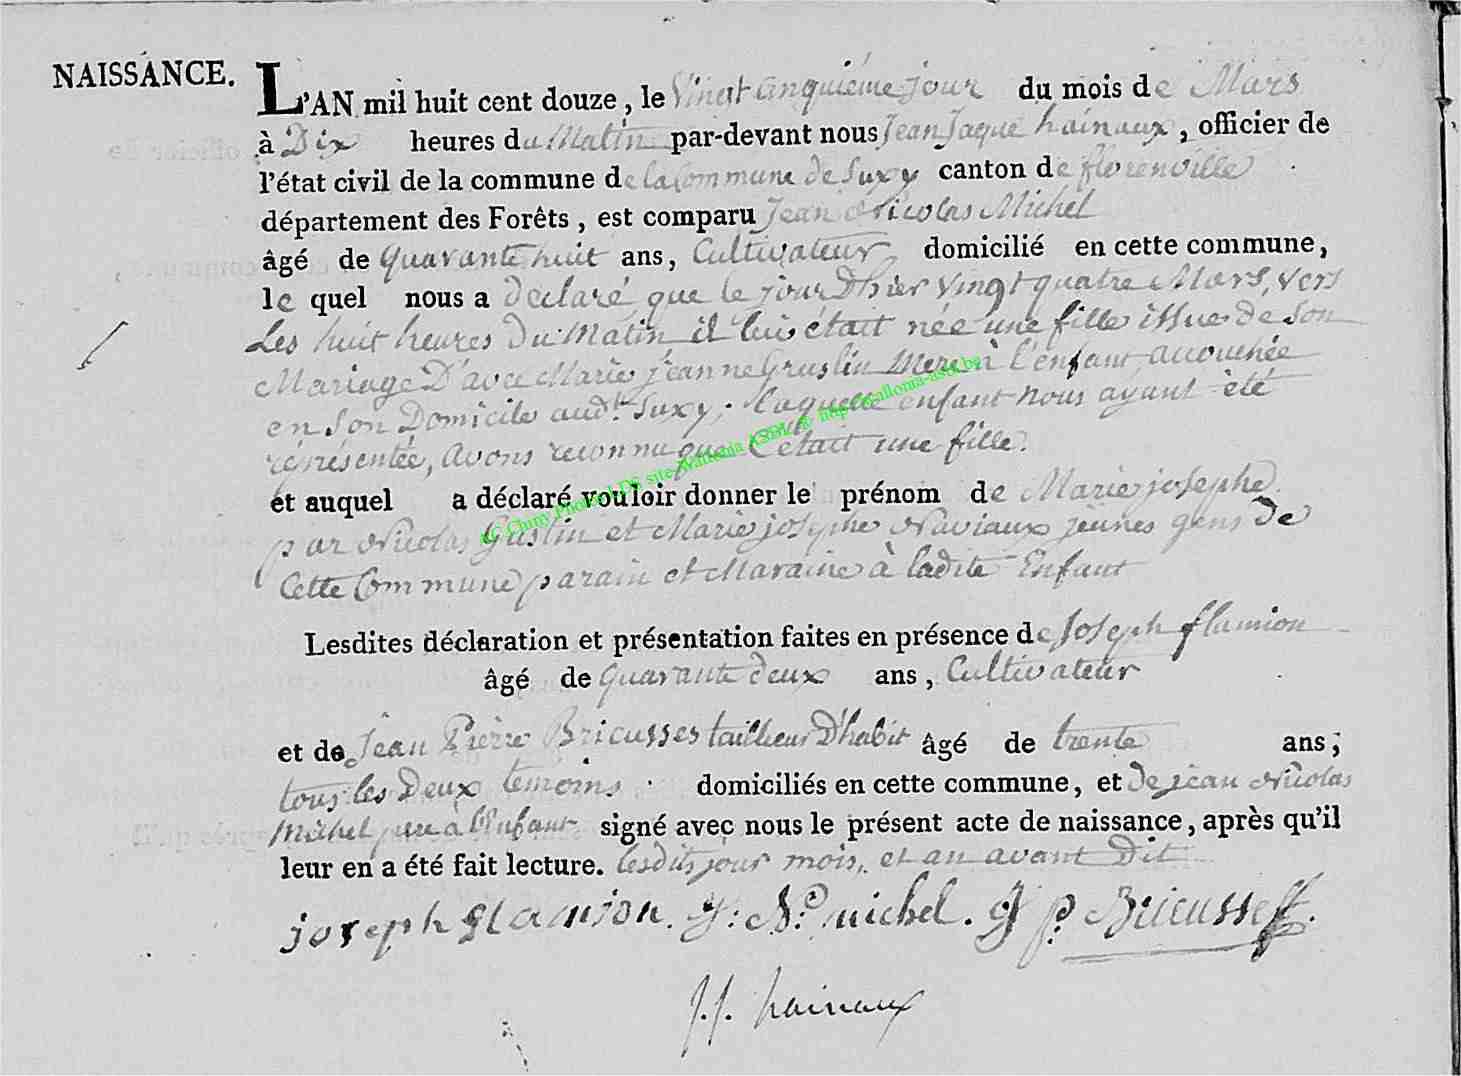 NAISSANCE.
L'AN mil huit cent douze, le Vingt Cinquiéme jour du mois de Mars
à Dix heures du Matin par-devant nous Jean Jaque hainaux, officier de
l'état civil de la commune de la Commune de Suxy canton de florenville
département des Forêts, est comparu Jean Nicolas Michel
âgé de Quarante huit ans, Cultivateur, domicilié en cette commune,
le quel nous a declaré que le jour D'hier vingt quatre Mars, vers
Les huit heures Du Matin il lui était née une fille issue de Son
Mariage D'avec Marie jeanne Gruslin Mere à l'enfant, accouchée
en Son Domicile audt. Suxy, laquelle enfant nous ayant été
représentée, avons reconnu que C'était une fille.
et auquel a déclaré vouloir donner le prénom de Marie josephe
par Nicolas Guslin et Marie josephe Naviaux jeunes gens de
Cette Commune parain et Maraine à ladite Enfant
Lesdites déclaration et présentation faites en présence de Joseph flamion
âgé de Quarante deux ans, Cultivateur
et de Jean Pierre Bricusses tailleur D'habit âgé de trente ans;
tous les Deux temoins domiciliés en cette commune, et de jean Nicolas
Michel pere a l'Enfant signé avec nous le présent acte de naissance, après qu'il
leur en a été fait lecture. lesdits jour mois, et an avant Dit
joseph flamion. J: N. michel. J p. Bricusse
J.J. hainaux
AC Chiny Photo LDS site Wallonia ASBL @ http://wallonia-asbl.be